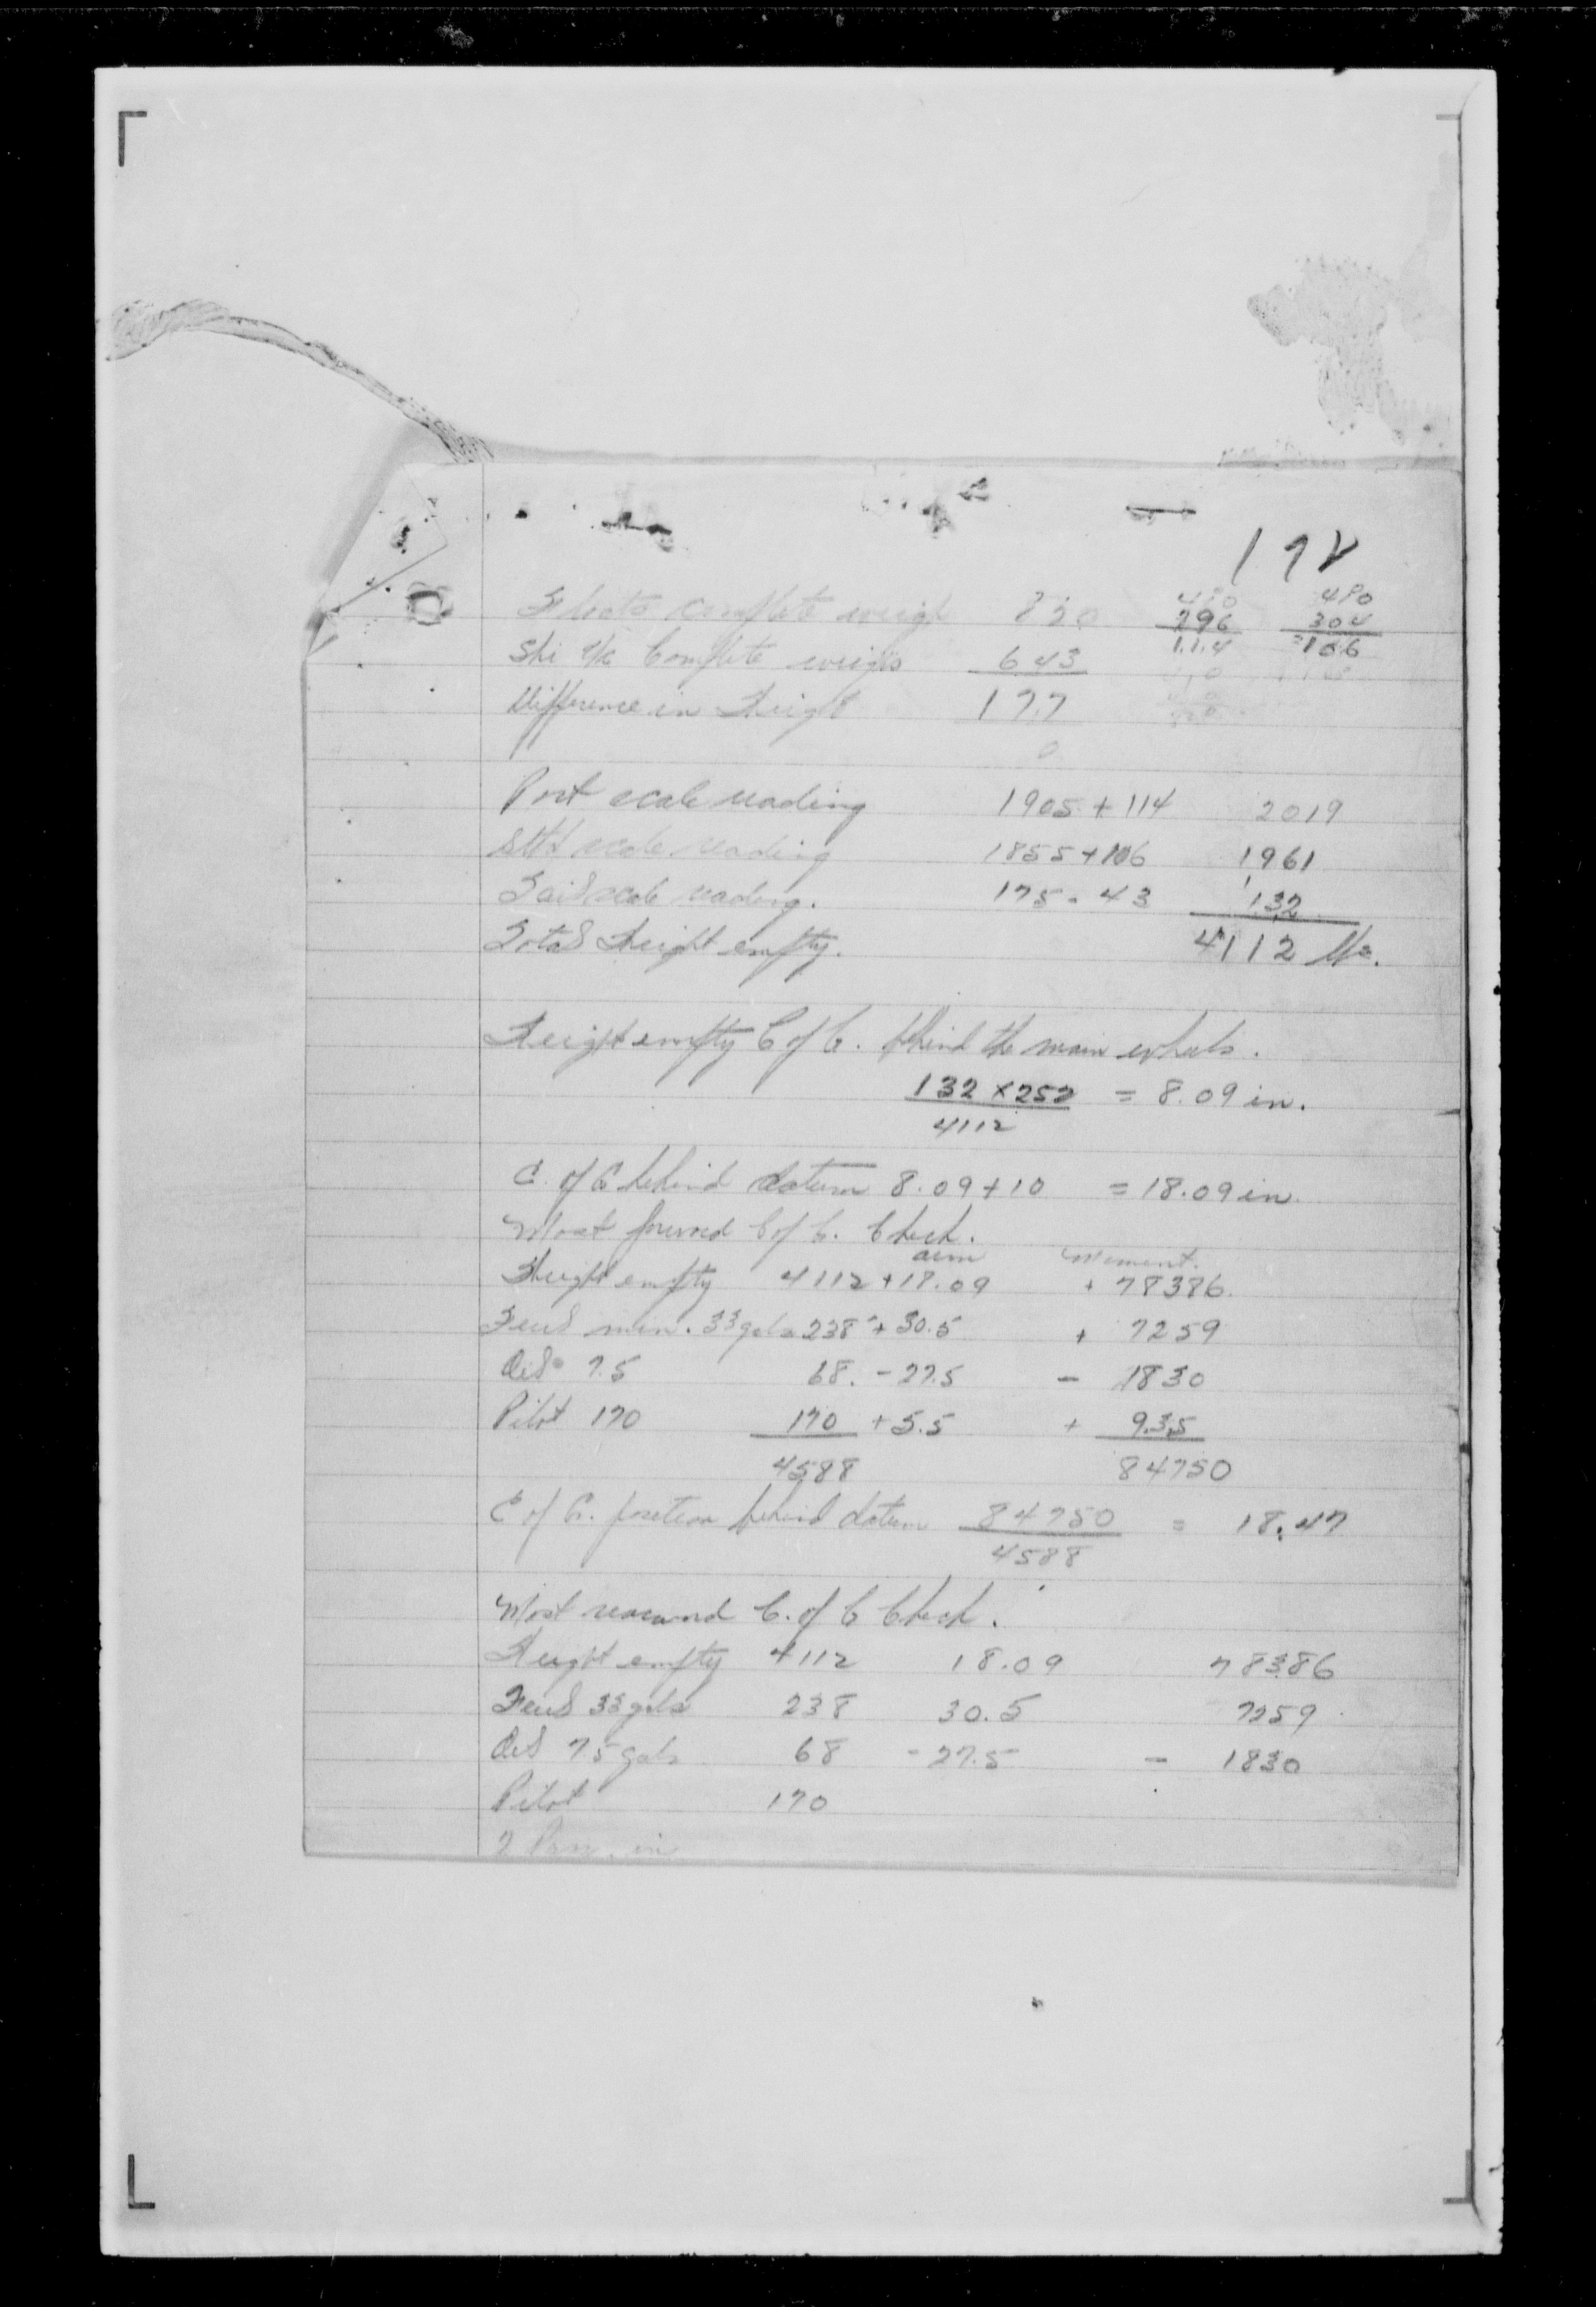 172
Floats complete weigh 820 410 410
296 304
Ski u/c Complete weighs 643 114 106
Difference in Weight 177
Port scale reading 1905 + 114 2019
Stbd scale reading 1855 + 106 1961
Tail scale reading. 175 - 43 132
Total Weight empty. 4112 lbs.
Weight empty C of G. behind the main wheels.
132 x 252 = 8.09 in.
4112
C. of G behind datum 8.09 + 10 = 18.09 in.
Most forward C of G. Check.
arm Moment.
Weight empty 4112 + 18.09 + 78386
Fuel min. 33 gals 238 + 30.5 + 7259
Oil 7.5 68. - 27.5 - 1830
Pilot 170 170 + 5.5 + 935
4588 84750
C of G. position behind datum 84750 = 18.47
4588
Most rearward C. of G Check.
Weight empty 4112 18.09 78386
Fuel 33 gals 238 30.5 7259
Oil 7.5 gals 68 - 27.5 - 1830
Pilot 170
2 Pass. in